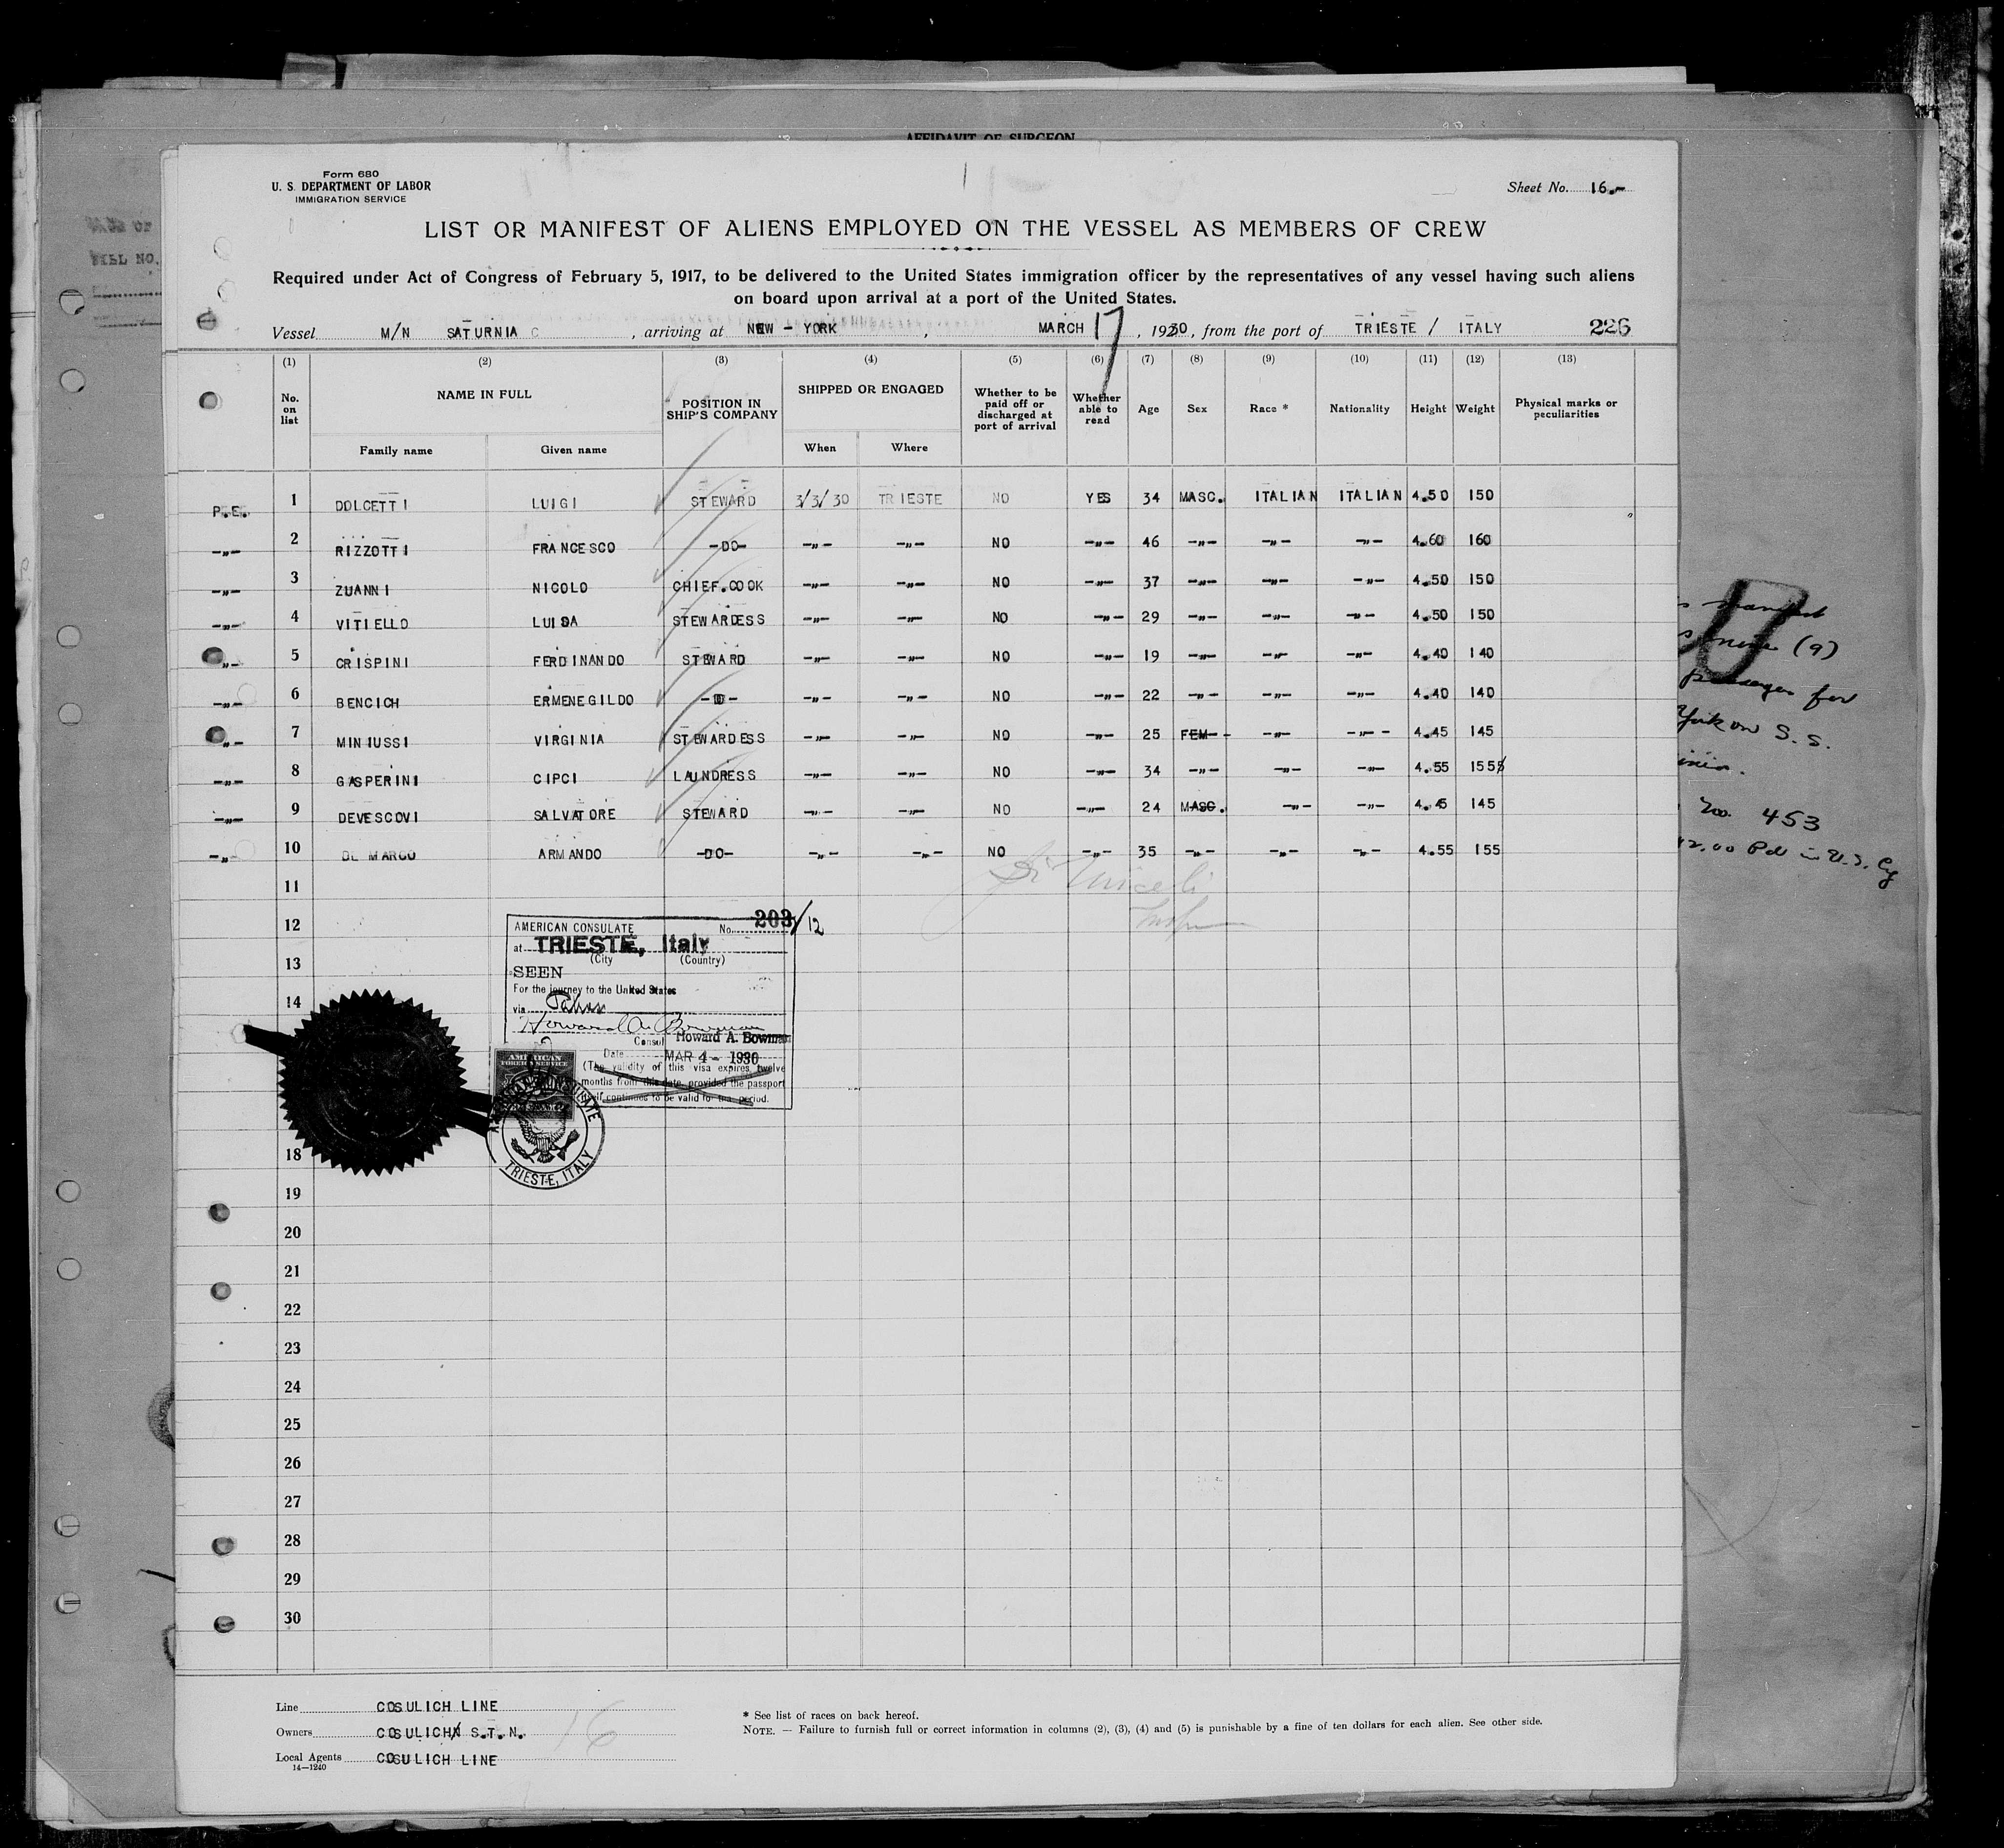 AFFIDAVIT OF SURGEON
Form 680
U. S. DEPARTMENT OF LABOR
IMMIGRATION SERVICE
Sheet No. 16.-
LIST OR MANIFEST OF ALIENS EMPLOYED ON THE VESSEL AS MEMBERS OF CREW
Required under Act of Congress of February 5, 1917, to be delivered to the United States immigration officer by the representatives of any vessel having such aliens
on board upon arrival at a port of the United States.
Vessel M/N SATURNIA , arriving at NEW - YORK , MARCH 17 , 1930, from the port of TRIESTE / ITALY 226
(1) (2) (3) (4) (5) (6) (7) (8) (9) (10) (11) (12) (13)
No. on list NAME IN FULL POSITION IN SHIP'S COMPANY SHIPPED OR ENGAGED Whether to be paid off or discharged at port of arrival Whether able to read Age Sex Race * Nationality Height Weight Physical marks or peculiarities
Family name Given name When Where
P.E. 1 DOLCETTI LUIGI STEWARD 3/3/30 TRIESTE NO YES 34 MASC. ITALIAN ITALIAN 4.50 150
-„- 2 RIZZOTTI FRANCESCO -DO- -„- -„- NO -„- 46 -„- -„- -„- 4.60 160
-„- 3 ZUANNI NICOLO CHIEF.COOK -„- -„- NO -„- 37 -„- -„- -„- 4.50 150
-„- 4 VITIELLO LUISA STEWARDESS -„- -„- NO -„- 29 -„- -„- -„- 4.50 150
-„- 5 CRISPINI FERDINANDO STEWARD -„- -„- NO -„- 19 -„- -„- -„- 4.40 140
-„- 6 BENCICH ERMENEGILDO -DO- -„- -„- NO -„- 22 -„- -„- -„- 4.40 140
-„- 7 MINIUSSI VIRGINIA STEWARDESS -„- -„- NO -„- 25 FEM- -„- -„- 4.45 145
-„- 8 GASPERINI CIPCI LAUNDRESS -„- -„- NO -„- 34 -„- -„- -„- 4.55 155
-„- 9 DEVESCOVI SALVATORE STEWARD -„- -„- NO -„- 24 MASC. -„- -„- 4.45 145
-„- 10 DE MARCO ARMANDO -DO- -„- -„- NO -„- 35 -„- -„- -„- 4.55 155
11
12
13
14
18
19
20
21
22
23
24
25
26
27
28
29
30
AMERICAN CONSULATE No. 203/12
at TRIESTE, Italy
(City (Country)
SEEN
For the journey to the United States
via
Howard A. Bowman
Consul Howard A. Bowman
Date MAR 4 - 1930
(The validity of this visa expires twelve
months from this date, provided the passport
itself continues to be valid for that period.
AMERICAN
FOREIGN SERVICE
AMERICAN CONSULATE
TRIESTE, ITALY
Line COSULICH LINE
Owners COSULICH S.T.N.
Local Agents COSULICH LINE
14-1240
16
* See list of races on back hereof.
NOTE. — Failure to furnish full or correct information in columns (2), (3), (4) and (5) is punishable by a fine of ten dollars for each alien. See other side.
manifest
nine (9)
passenger for
York on S. S.
No. 453